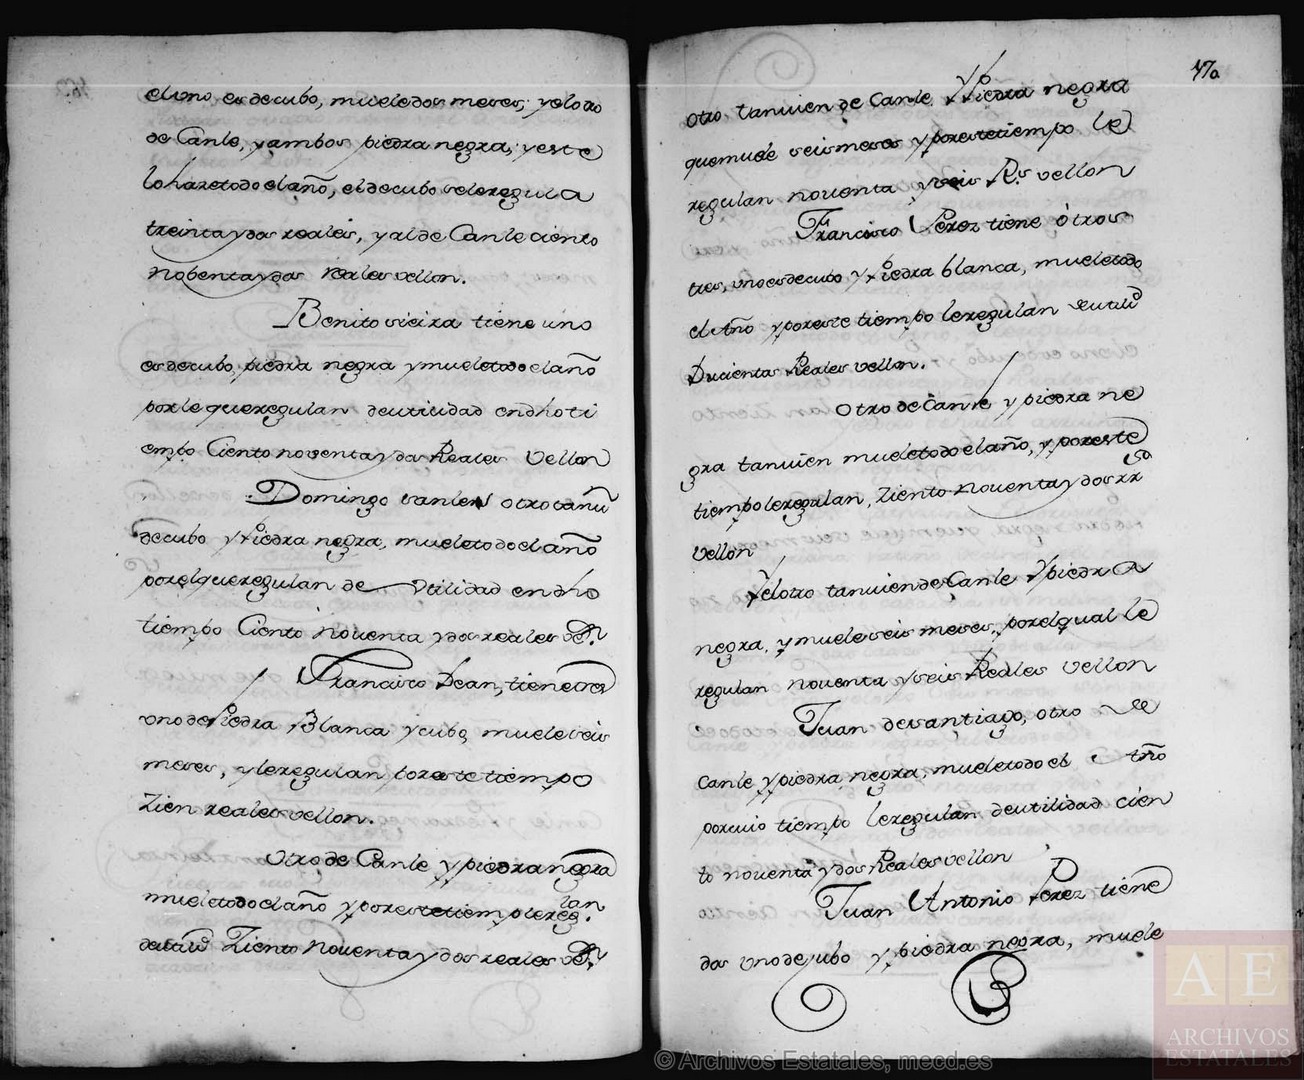 el uno es de cubo, muele dos meses, y el otro
de Canle, y ambos piedra negra, y este
lo haze todo el año, el de cubo se le regula
treinta y dos reales, y al de Canle ciento
nobenta y dos reales vellon.
Benito vieira tiene uno
es de cubo, piedra negra y muele todo el año
por le que regulan de utilidad en dho ti
empo Ciento noventa y dos Reales Vellon
Domingo sanles otro tanvn
de cubo y Piedra negra, muele todo el año
por el que regulan de Vtilidad en dho
tiempo Ciento Noventa y dos reales
Francisco Dean, tiene tres
uno de Piedra Blanca y cubo, muele seis
meses, y le regulan por este tiempo
Zien reales vellon.
Otro de Canle y piedra negra
muele todo el año y por este tiempo le regulan
de utilid Ziento Noventa y dos reales
470
otro tanvien de Canle y Piedra negra
que muele seis meses y por este tiempo le
regulan noventa y seis Rs. vellon
Francisco Perez tiene otros
tres, uno es de cubo y Piedra blanca, muele todo
el Año y por este tiempo le regulan de utilid
Ducientos Reales vellon.
Otro de Canle y piedra ne
gra tanvien muele todo el año, y por este
tiempo le regulan, Ziento noventa y dos rs
Vellon
Y el otro tanvien de Canle y piedra
negra, y muele seis meses, por el qual le
regulan noventa y seis Reales Vellon
Juan de santiago, otro de
Canle y piedra negra, muele todo el Año
por cuio tiempo le regulan de utilidad cien
to noventa y dos Reales vellon
Juan Antonio Perez tiene
dos uno de cubo y piedra negra, muele
AE
ARCHIVOS
ESTATALES
© Archivos Estatales, mecd.es